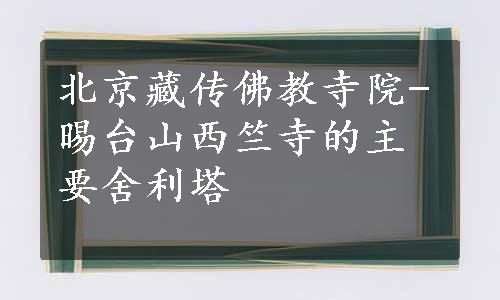 北京藏传佛教寺院-
暘台山西竺寺的主
要舍利塔